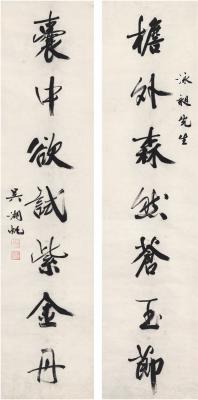 檐外森然蒼玉節
泳裮先生
囊中欲試紫金丹
吳湖帆